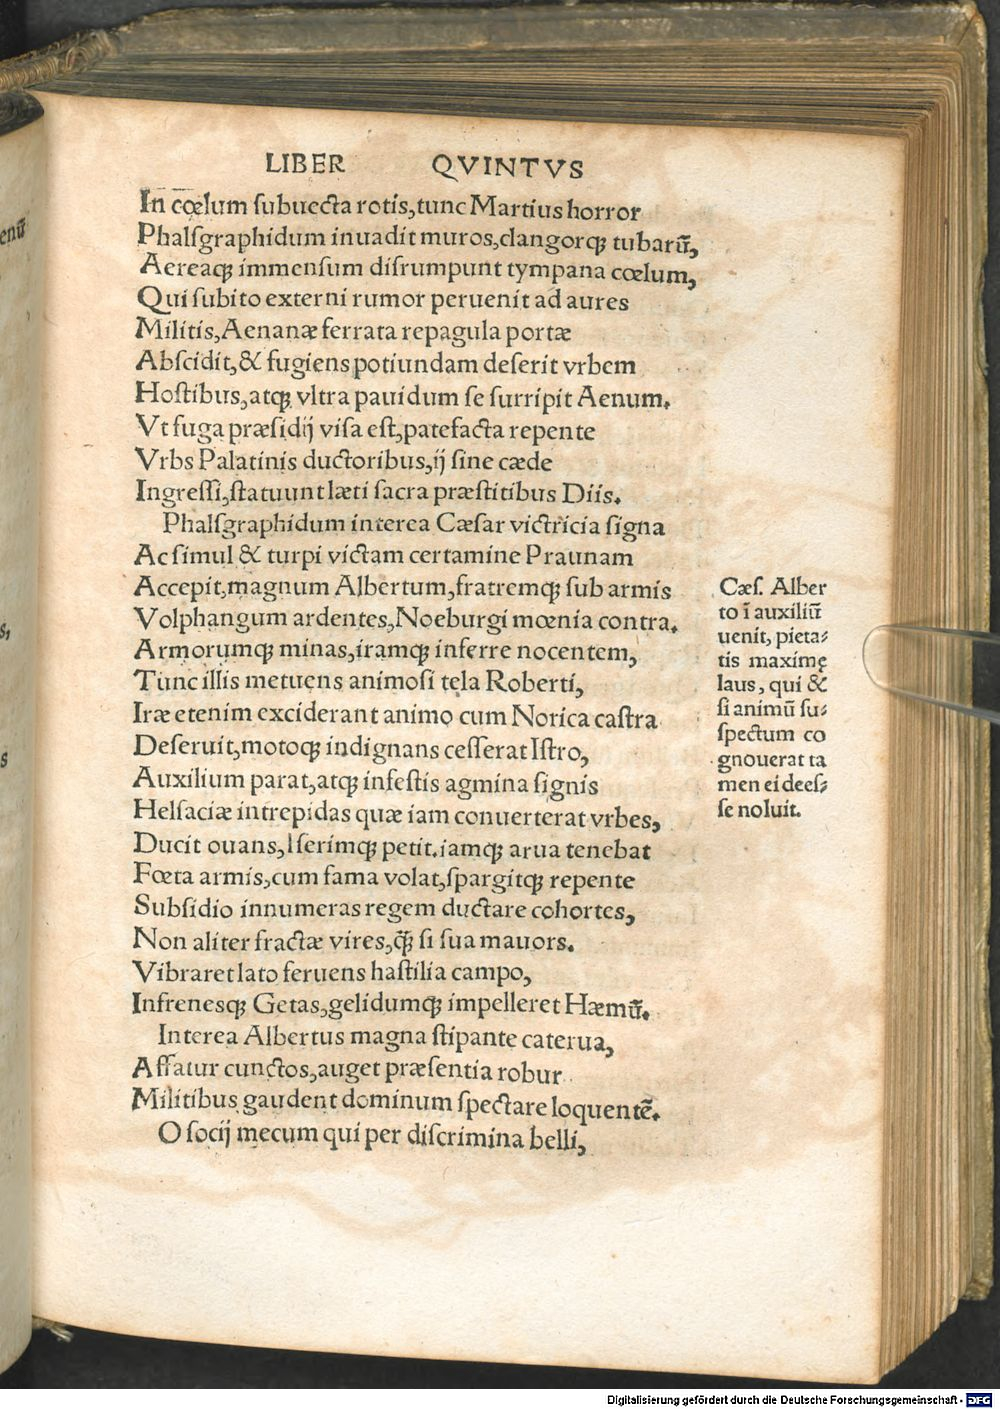 LIBER QVINTVS
In cœlum ſubuecta rotis, tunc Martius horror
Phalſgraphidum inuadit muros, clangorq; tubarũ,
Aereaq; immenſum diſrumpunt tympana cœlum,
Qui ſubito externi rumor peruenit ad aures
Militis, Aenanæ ferrata repagula portæ
Abſcidit, & fugiens potiundam deſerit vrbem
Hoſtibus, atq; vltra pauidum ſe ſurripit Aenum.
Vt fuga præſidij viſa eſt, patefacta repente
Vrbs Palatinis ductoribus, ij ſine cæde
Ingreſſi, ſtatuunt læti ſacra præſtitibus Diis.
Phalſgraphidum interea Cæſar victricia ſigna
Ac ſimul & turpi victam certamine Praunam
Accepit, magnum Albertum, fratremq; ſub armis
Volphangum ardentes, Noeburgi mœnia contra.
Armorumq; minas, iramq; inferre nocentem,
Tunc illis metuens animoſi tęla Roberti,
Iræ etenim exciderant animo cum Norica caſtra
Deſeruit, motoq; indignans ceſſerat Iſtro,
Auxilium parat, atq; infeſtis agmina ſignis
Helſaciæ intrepidas quæ iam conuerterat vrbes,
Ducit ouans, Iſerimq; petit. iamq; arua tenebat
Fœta armis, cum fama volat, ſpargitq; repente
Subſidio innumeras regem ductare cohortes,
Non aliter fractæ vires, q̃ ſi ſua mauors.
Vibraret lato feruens haſtilia campo,
Infrenesq; Getas, gelidumq; impelleret Hæmũ.
Interea Albertus magna ſtipante caterua,
Affatur cunctos, auget præſentia robur
Militibus gaudent dominum ſpectare loquentẽ.
O ſocij mecum qui per diſcrimina belli,
Cæſ. Alber
to ĩ auxiliũ
uenit, pieta⸗
tis maximę
laus, qui &
ſi animũ ſu⸗
ſpectum co
gnouerat ta
men ei deeſ⸗
ſe noluit.
enũ
s,
s
Digitalisierung gefördert durch die Deutsche Forschungsgemeinschaft - DFG